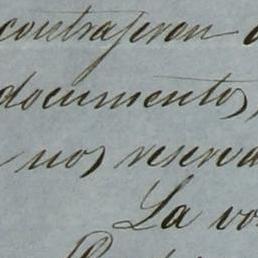 contrajeron
documentos,
nos reserva
La vo